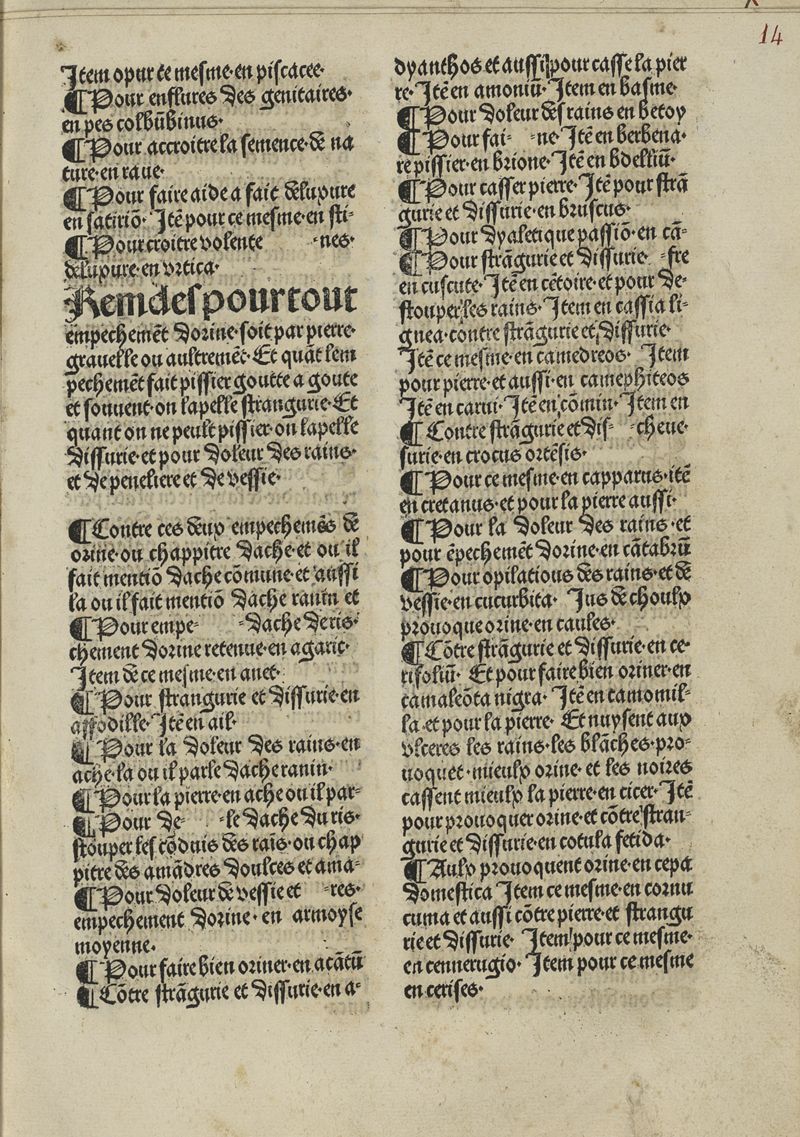 14
Item opur ce mesme·en piscacee·
¶ Pour enflures des genitaires·
en pes colũbinus·
¶ Pour accroitre la semence·de na
ture·en raue·
¶ Pour faire aide a fait deluxure
en satiriõ· Itẽ pour ce mesme·en sti-
¶ Pour croitre volente -nes·
deluxure·en vrtica·
Remdes pour tout
empechemẽt dorine·soit par pierre·
grauelle ou aultremẽt· Et quãt lem
pechemẽt fait pissier goutte a goute
et souuent·on lapelle strangurie·Et
quant on ne peult pissier·on lapelle
dissurie·et pour doleur des rains·
et de peneliere et de vessie·
¶ Contre ces deux empechemẽs de
orine·ou chappitre dache·et ou il
fait mentiõ dache cõmune·et aussi
la ou il fait mentiõ dache ranin et
¶ Pour empe- -dache deris·
chement dorine retenue·en agaric·
Item de ce mesme·en anet·
¶ Pour strangurie et dissurie·en
affodille·Itẽ en ail·
¶ Pour la doleur des rains·en
ache·la ou il parle dache ranin·
¶ Pour la pierre·en ache ou il par-
¶ Pour de- -le dache du ris·
stouper les cõduis des raĩs·ou chap
pitre des amãdres doulces et ama-
¶ Pour doleur de vessie et -res·
empechement dorine·en armoyse
moyenne·
¶ Pour faire bien oriner·en acãtũ
¶ Cõtre strãgurie et dissurie·en a-
dyanthos et aussi pour casse la pier
re·Itẽ en amoniũ·Item en basme·
¶ Pour doleur des rains en betoy
¶ Pour fai- -ne·Itẽ en berbena·
re pissier·en brione·Itẽ en bdelliũ·
¶ Pour casser pierre·Itẽ pour strã
gurie et dissurie·en bruscus·
¶ Pour dyaletique passiõ·en cã-
¶ Pour strãgurie et dissurie· -fre
en cuscute·Itẽ en cẽtoire·et pour de-
stouper les rains·Item en cassia li-
gnea·contre strãgurie et dissurie·
Itẽ ce mesme·en camedreos· Item
pour pierre·et aussi·en camephiteos
Itẽ en carui·Itẽ en cõmin·Item en
¶ Contre strãgurie et dis- -cheue·
surie·en crocus ortẽsis·
¶ Pour ce mesme·en capparus·itẽ
en cretanus·et pour la pierre aussi·
¶ Pour la doleur des rains·et
pour ẽpechemẽt dorine·en cãtabrũ
¶ Pour opilations des rains·et de
vessie·en cucurbita· Jus de choulx
prouoque orine·en caules·
¶ Cõtre strãgurie et dissurie·en ce-
rifoliũ· Et pour faire bien oriner·en
camaleõta nigra· Itẽ en camomil-
la·et pour la pierre· Et nuysent aux
vlceres les rains·les blãches·pro-
uoquet·mieulx orine·et les noires
cassent mieulx la pierre·en cicer·Itẽ
pour prouoquer orine·et cõtre stran-
gurie et dissurie·en cotula fetida·
¶ Aulx prouoquent orine·en cepa
domestica Item ce mesme·en cornu
cuma et aussi cõtre pierre·et strangu
rie et dissurie· Item pour ce mesme·
en cennerugio· Item pour ce mesme
en cerises·